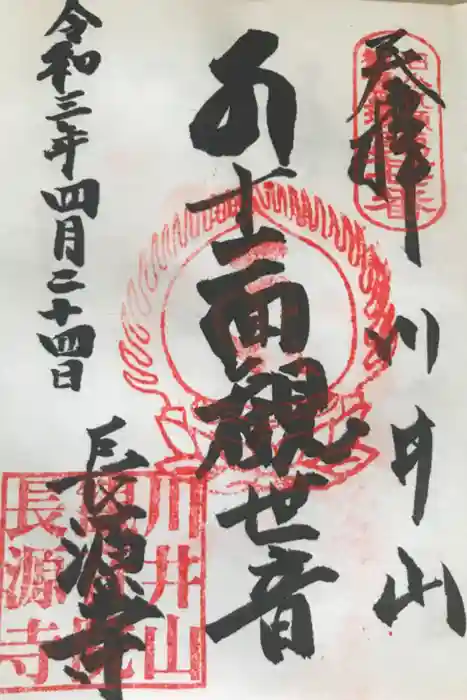 奉拝
川井山
十一面観世音
長源寺
令和三年四月二十四日
川井山
長源寺